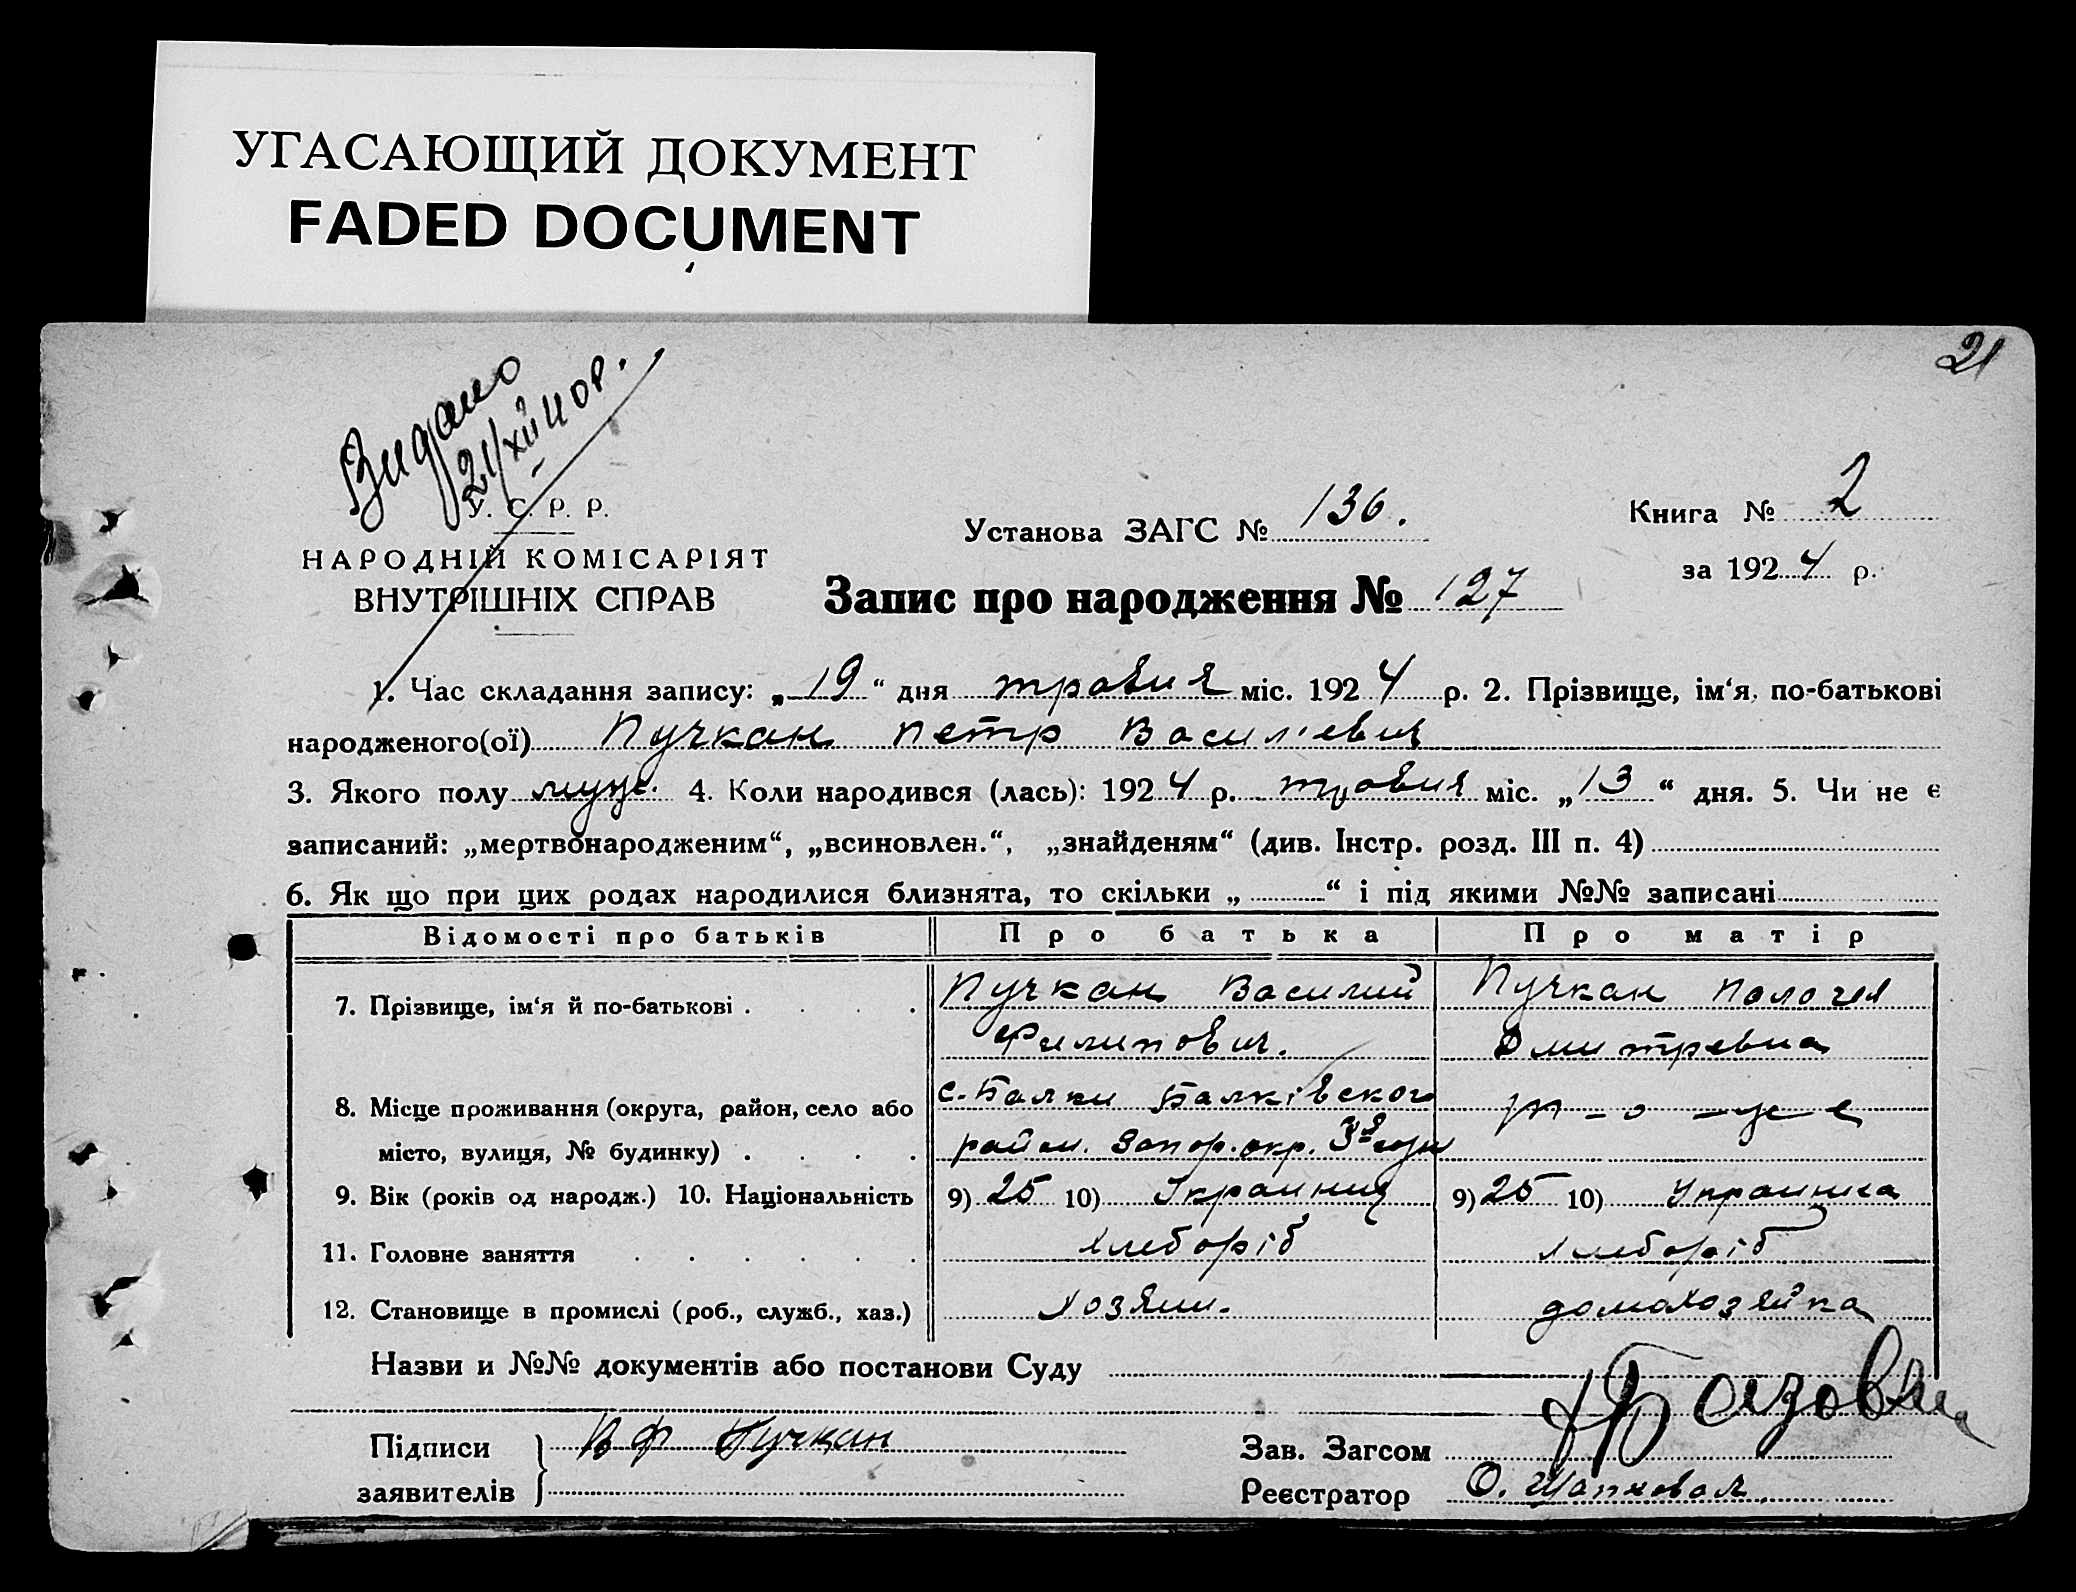 УГАСАЮЩИЙ ДОКУМЕНТ
FADED DOCUMENT
21
Видано
21/XII
У. С. Р. Р.
НАРОДНІЙ КОМІСАРІЯТ
ВНУТРІШНІХ СПРАВ
Установа ЗАГС № 136.
Книга № 2
за 1924 р.
Запис про народження № 127
1. Час складання запису: „19“ дня травня міс. 1924 р. 2. Прізвище, ім‘я, по-батькові
народженого(ої) Пучкан Петр Васил'евич
3. Якого полу муж. 4. Коли народився (лась): 1924 р. травня міс. „13“ дня. 5. Чи не є
записаний: „мертвонародженим“, „всиновлен.“, „знайденям“ (див. Інстр. розд. III п. 4)
6. Як що при цих родах народилися близнята, то скільки „ “ і під якими №№ записані
Відомості про батьків Про батька Про матір
7. Прізвище, ім‘я й по-батькові . . . . Пучкан Василий Пучкан
Филипович. Дмитревна
8. Місце проживання (округа, район, село або с. Балки Балківского т-о -же
місто, вулиця, № будинку) . . . . район. Запор. окр.
9. Вік (років од народж.) 10. Національність 9) 25 10) Украинец 9) 25 10) Украинка
11. Головне заняття . . . . . . хлеборіб хлеборіб
12. Становище в промислі (роб., служб., хаз.) хозяин. домохозяйка
Назви и №№ документів або постанови Суду
Підписи В Ф Пучкан
заявителів
Зав. Загсом
Реєстратор О. Шаповал